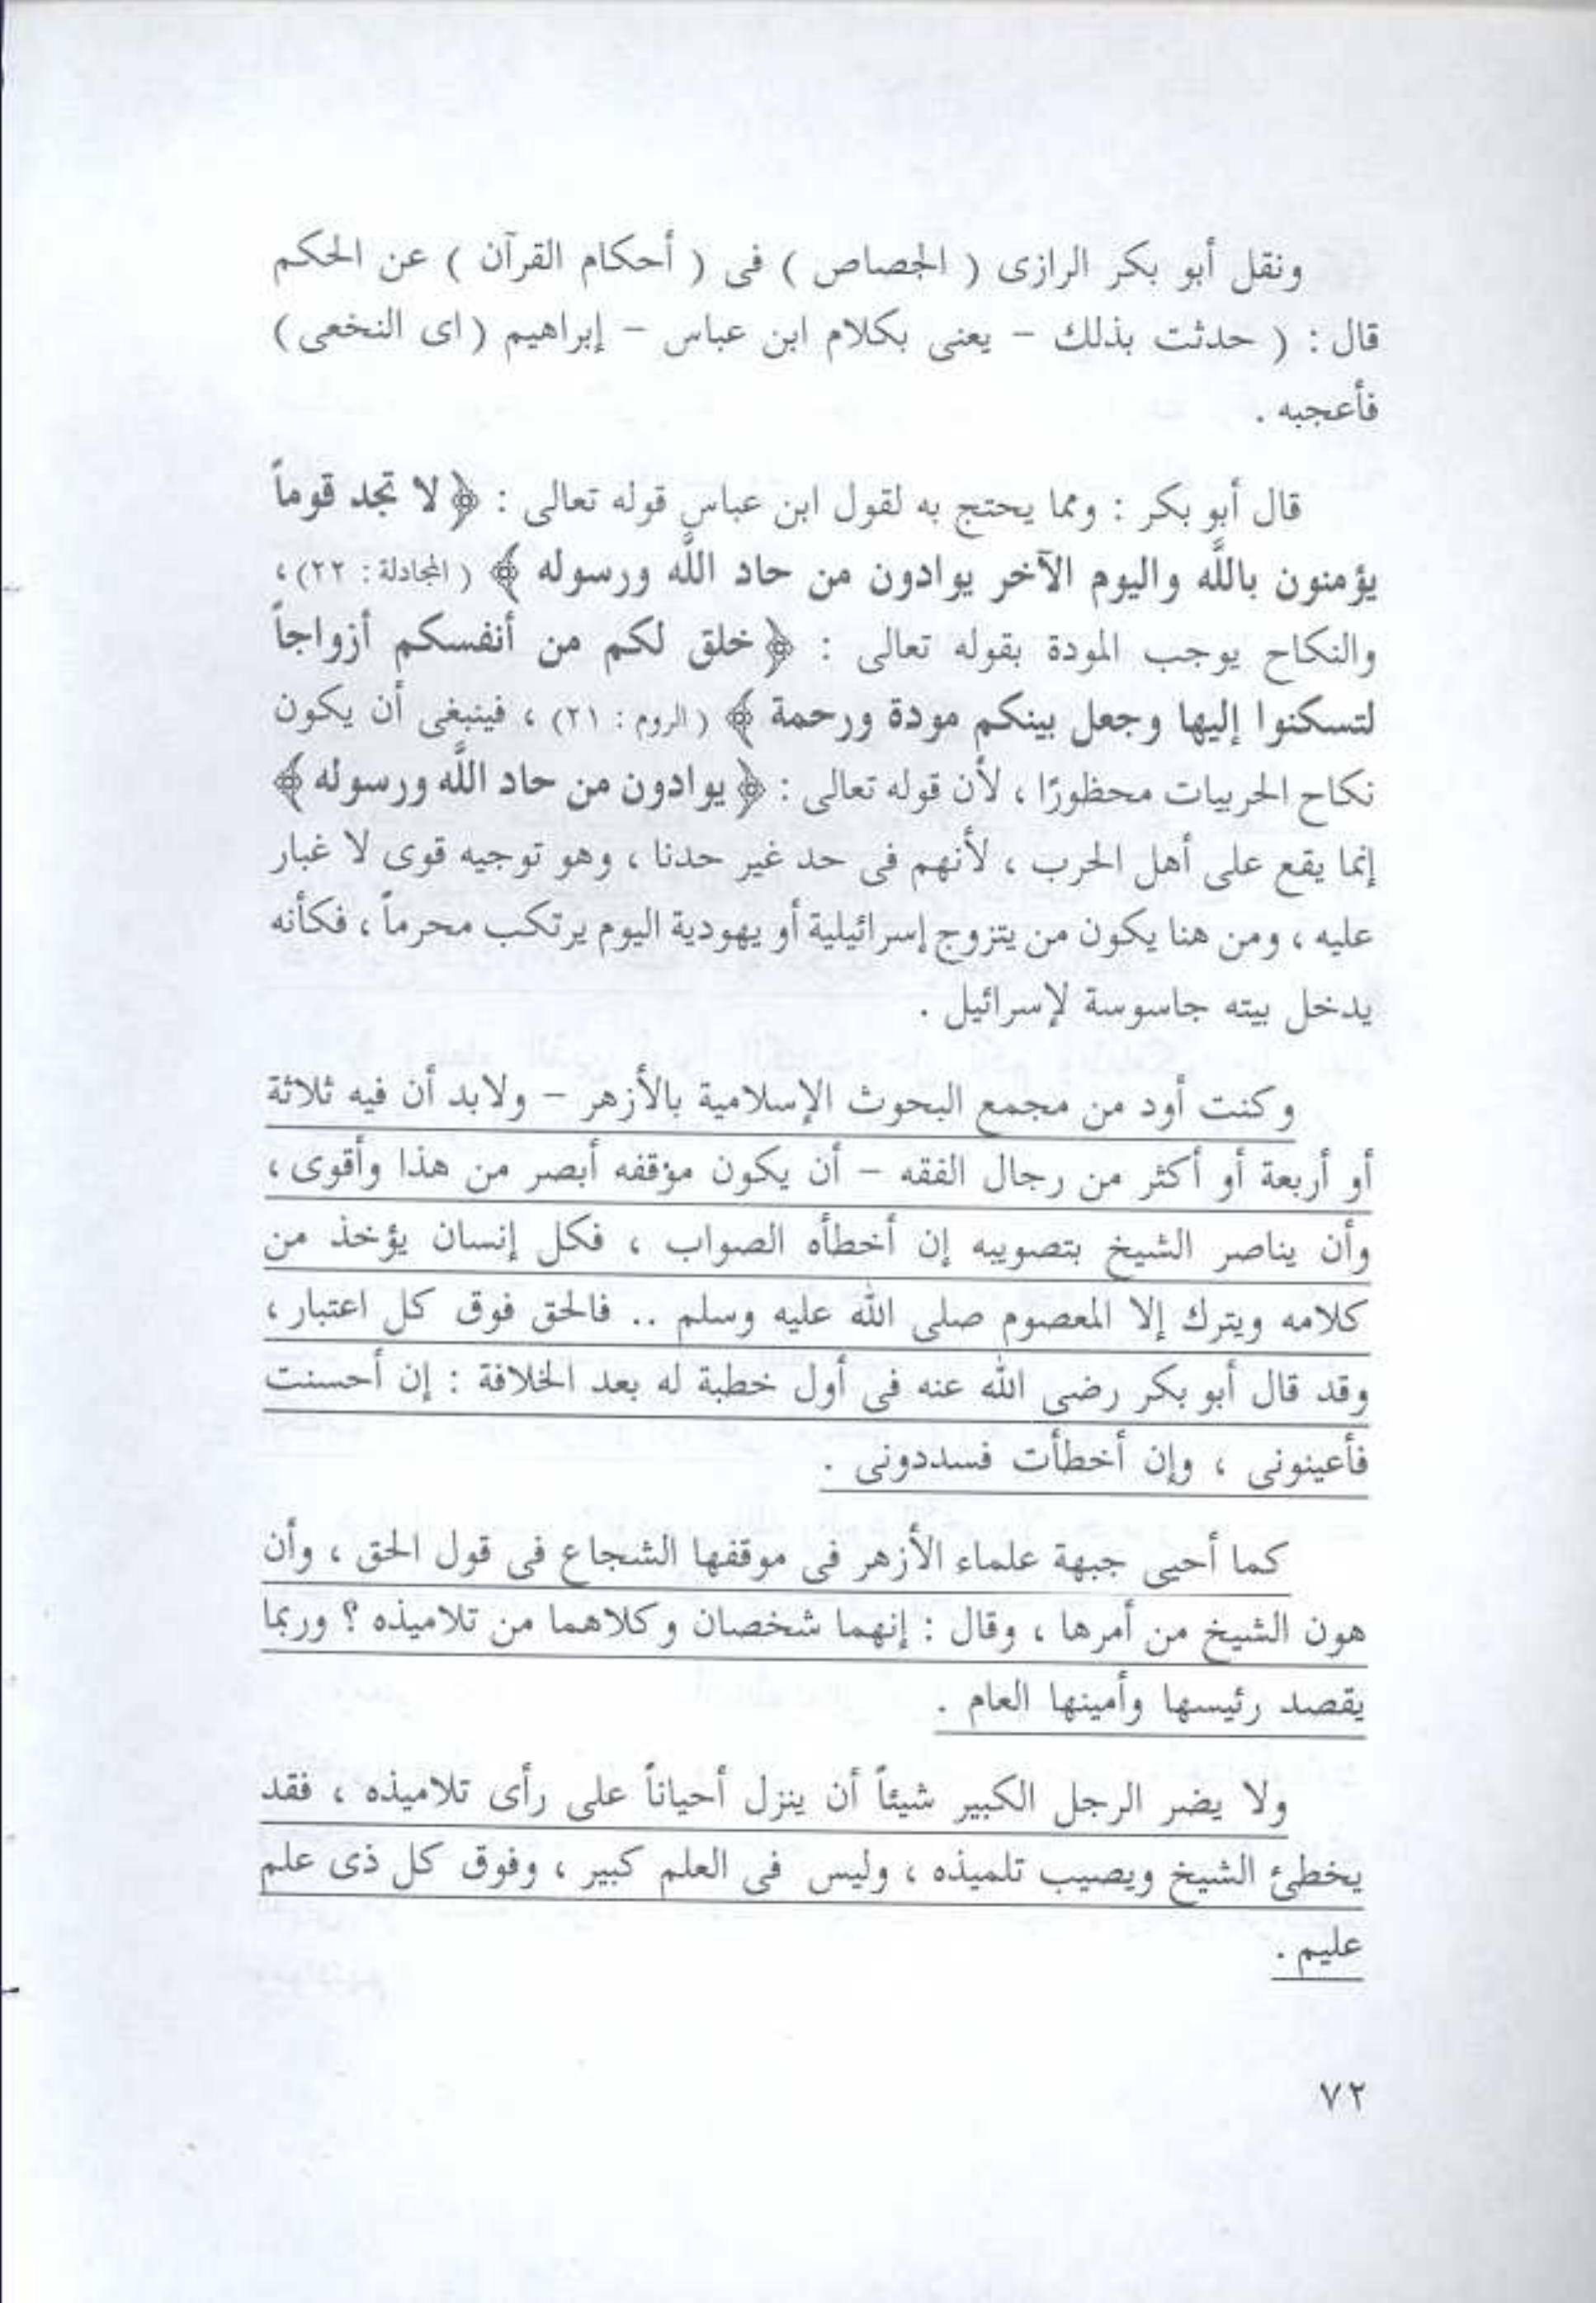 ونقل أبو بكر الرازى ( الجصاص ) فى ( أحكام القرآن ) عن الحكم
قال : ( حدثت بذلك – يعنى بكلام ابن عباس – إبراهيم ( اى النخعى )
فأعجبه .
قال أبو بكر : ومما يحتج به لقول ابن عباس قوله تعالى : ﴿ لا تجد قوماً
يؤمنون باللَّه واليوم الآخر يوادون من حاد اللَّه ورسوله ﴾ ( المجادلة : ٢٢) ،
والنكاح يوجب المودة بقوله تعالى : ﴿ خلق لكم من أنفسكم أزواجاً
لتسكنوا إليها وجعل بينكم مودة ورحمة ﴾ ( الروم : ٢١) ، فينبغى أن يكون
نكاح الحربيات محظورًا ، لأن قوله تعالى : ﴿ يوادون من حاد اللَّه ورسوله ﴾
إنما يقع على أهل الحرب ، لأنهم فى حد غير حدنا ، وهو توجيه قوى لا غبار
عليه ، ومن هنا يكون من يتزوج إسرائيلية أو يهودية اليوم يرتكب محرماً ، فكأنه
يدخل بيته جاسوسة لإسرائيل .
وكنت أود من مجمع البحوث الإسلامية بالأزهر – ولابد أن فيه ثلاثة
أو أربعة أو أكثر من رجال الفقه – أن يكون مؤقفه أبصر من هذا وأقوى ،
وأن يناصر الشيخ بتصويبه إن أخطأه الصواب ، فكل إنسان يؤخذ من
كلامه ويترك إلا المعصوم صلى الله عليه وسلم .. فالحق فوق كل اعتبار ،
وقد قال أبو بكر رضى الله عنه فى أول خطبة له بعد الخلافة : إن أحسنت
فأعينونى ، وإن أخطأت فسددونى .
كما أحيى جبهة علماء الأزهر فى موقفها الشجاع فى قول الحق ، وأن
هون الشيخ من أمرها ، وقال : إنهما شخصان وكلاهما من تلاميذه ؟ وربما
يقصد رئيسها وأمينها العام .
ولا يضر الرجل الكبير شيئاً أن ينزل أحياناً على رأى تلاميذه ، فقد
يخطئ الشيخ ويصيب تلميذه ، وليس فى العلم كبير ، وفوق كل ذى علم
عليم .
٧٢